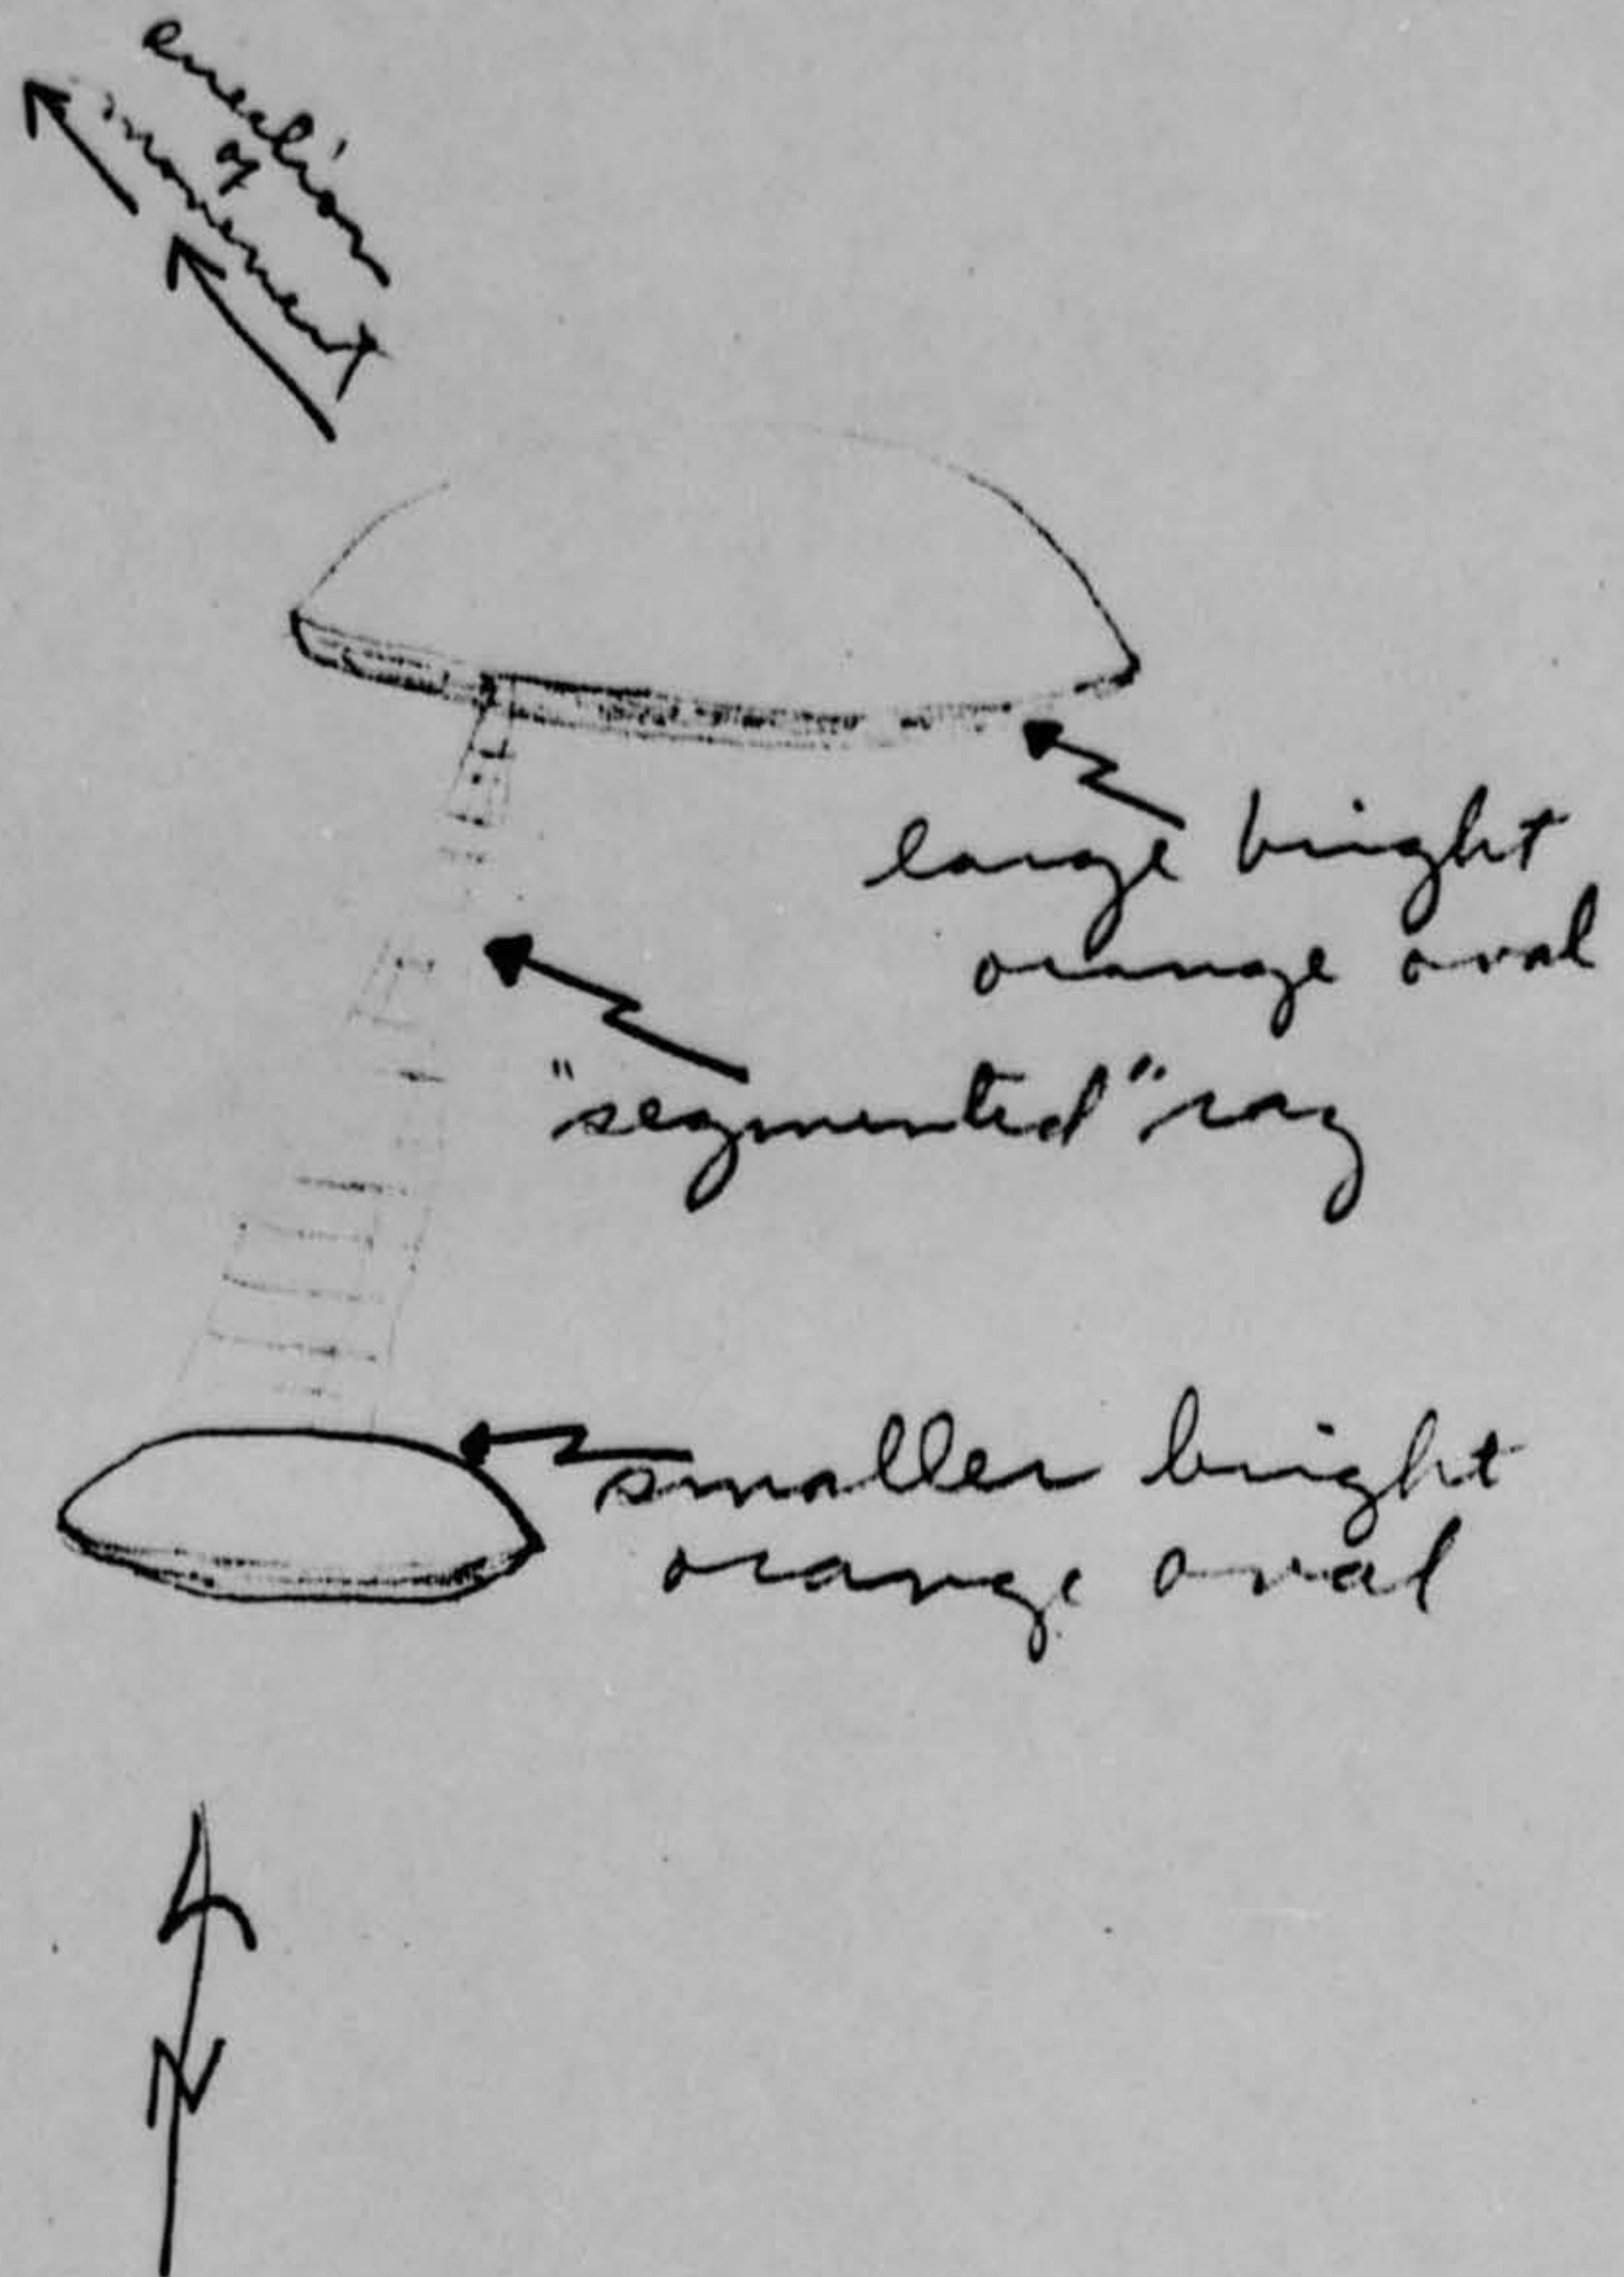 of
movement
large bright
orange oval
"segmented" ray
smaller bright
orange oval
N